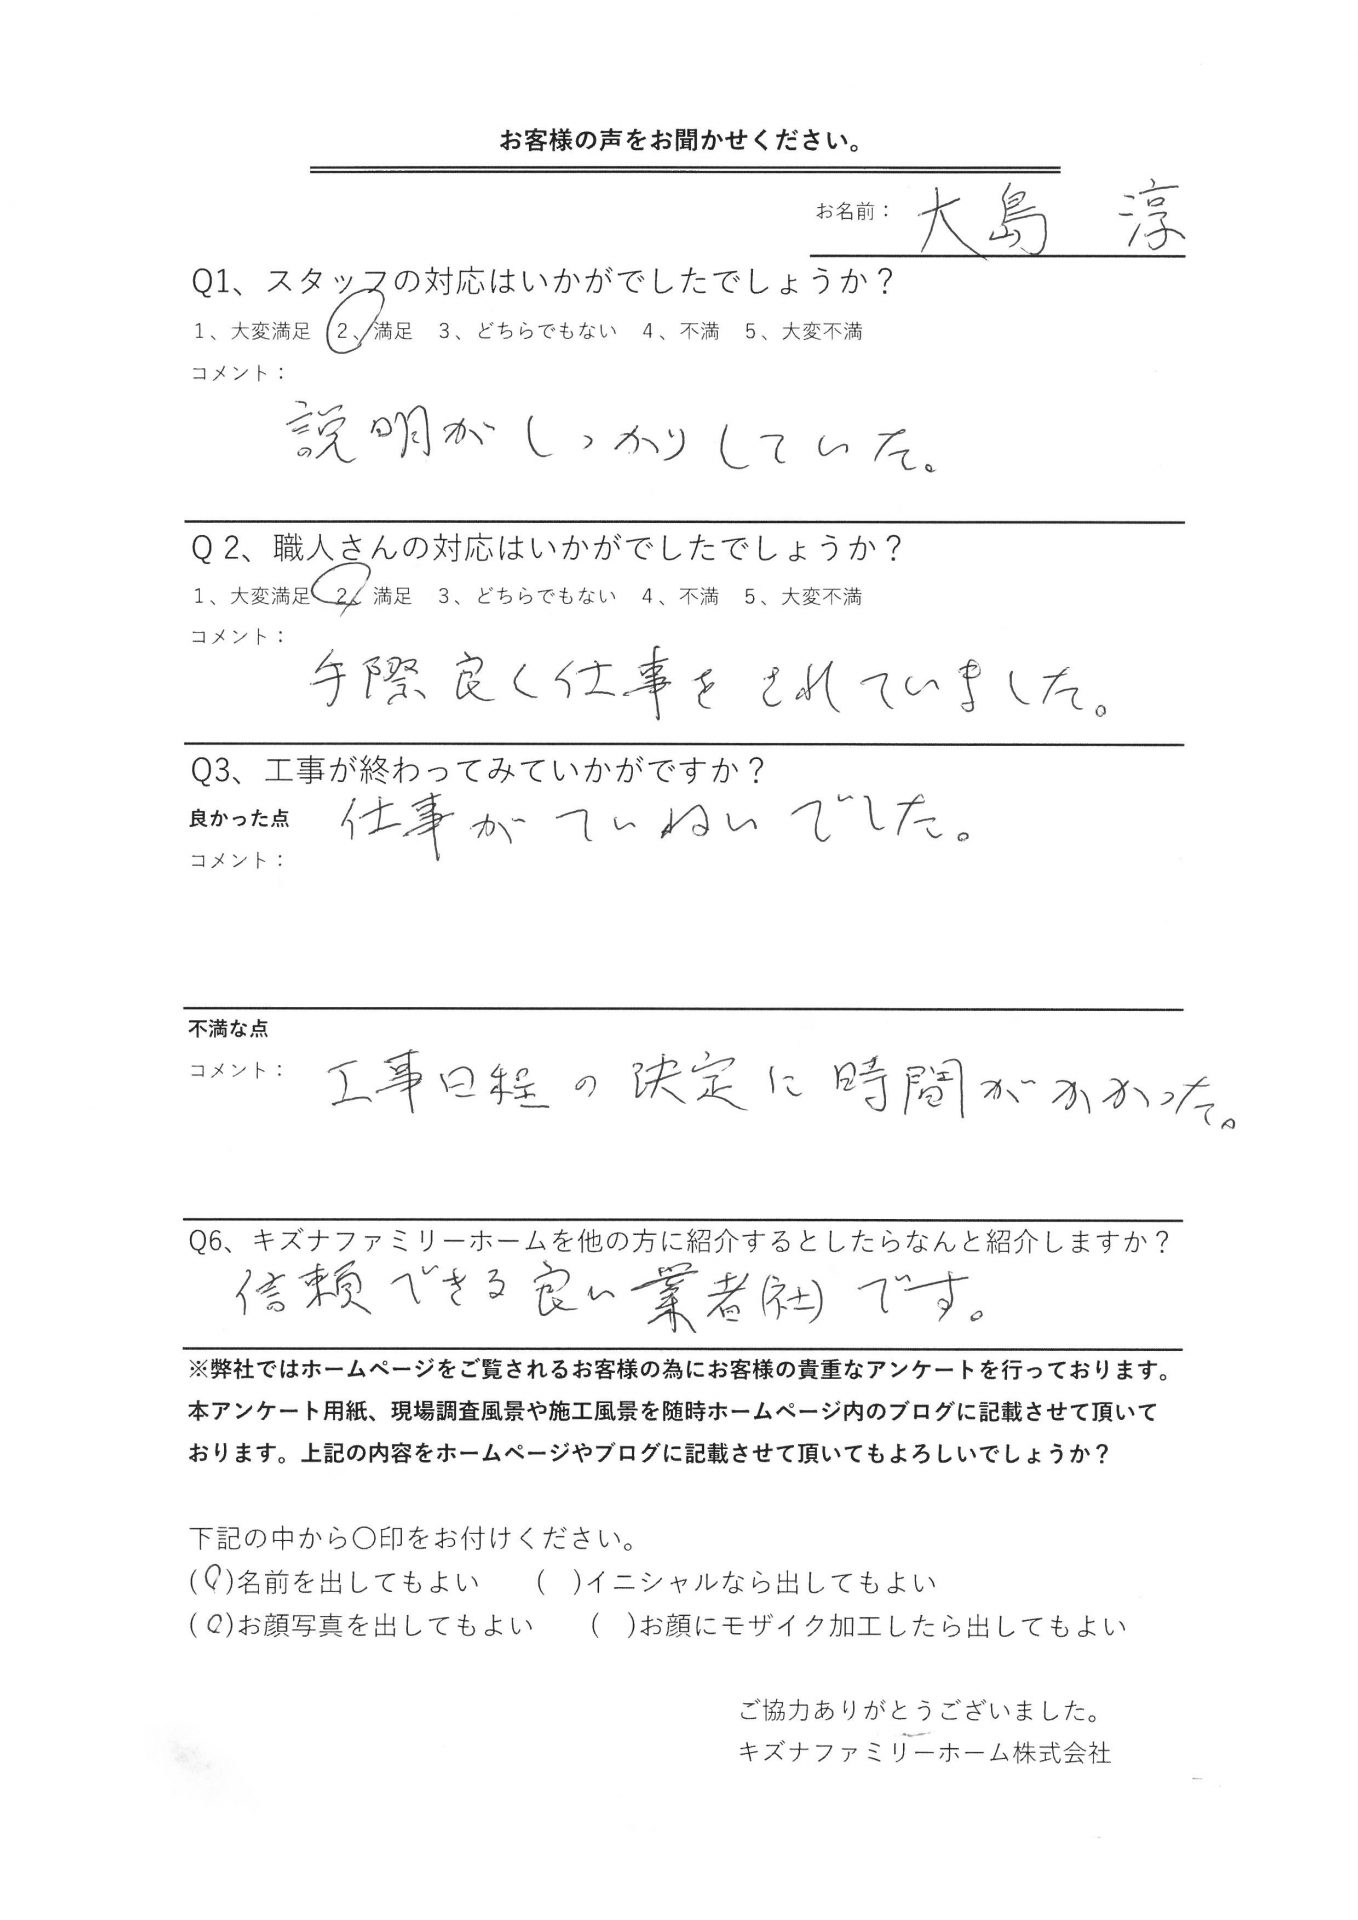 お客様の声をお聞かせください。
お名前： 大島 淳
Q1、スタッフの対応はいかがでしたでしょうか？
1、大変満足 2、満足 3、どちらでもない 4、不満 5、大変不満
コメント：
説明がしっかりしていた。
Q 2、職人さんの対応はいかがでしたでしょうか？
1、大変満足 2、満足 3、どちらでもない 4、不満 5、大変不満
コメント：
手際良く仕事をされていました。
Q3、工事が終わってみていかがですか？
良かった点 仕事がていねいでした。
コメント：
不満な点
コメント： 工事日程の決定に時間がかかった。
Q6、キズナファミリーホームを他の方に紹介するとしたらなんと紹介しますか？
信頼できる良い業者(社)です。
※弊社ではホームページをご覧されるお客様の為にお客様の貴重なアンケートを行っております。
本アンケート用紙、現場調査風景や施工風景を随時ホームページ内のブログに記載させて頂いて
おります。上記の内容をホームページやブログに記載させて頂いてもよろしいでしょうか？
下記の中から〇印をお付けください。
(○)名前を出してもよい ( )イニシャルなら出してもよい
(○)お顔写真を出してもよい ( )お顔にモザイク加工したら出してもよい
ご協力ありがとうございました。
キズナファミリーホーム株式会社